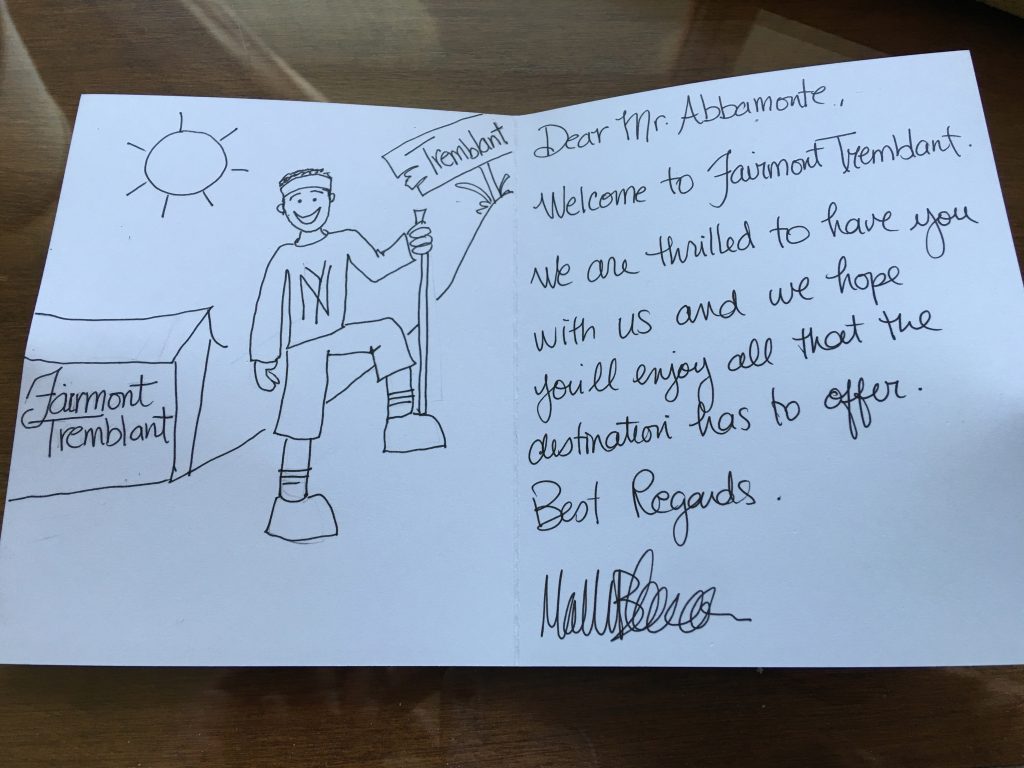 Tremblant
NY
Fairmont
Tremblant
Dear Mr. Abbamonte,
Welcome to Fairmont Tremblant.
We are thrilled to have you
with us and we hope
you'll enjoy all that the
destination has to offer.
Best Regards.